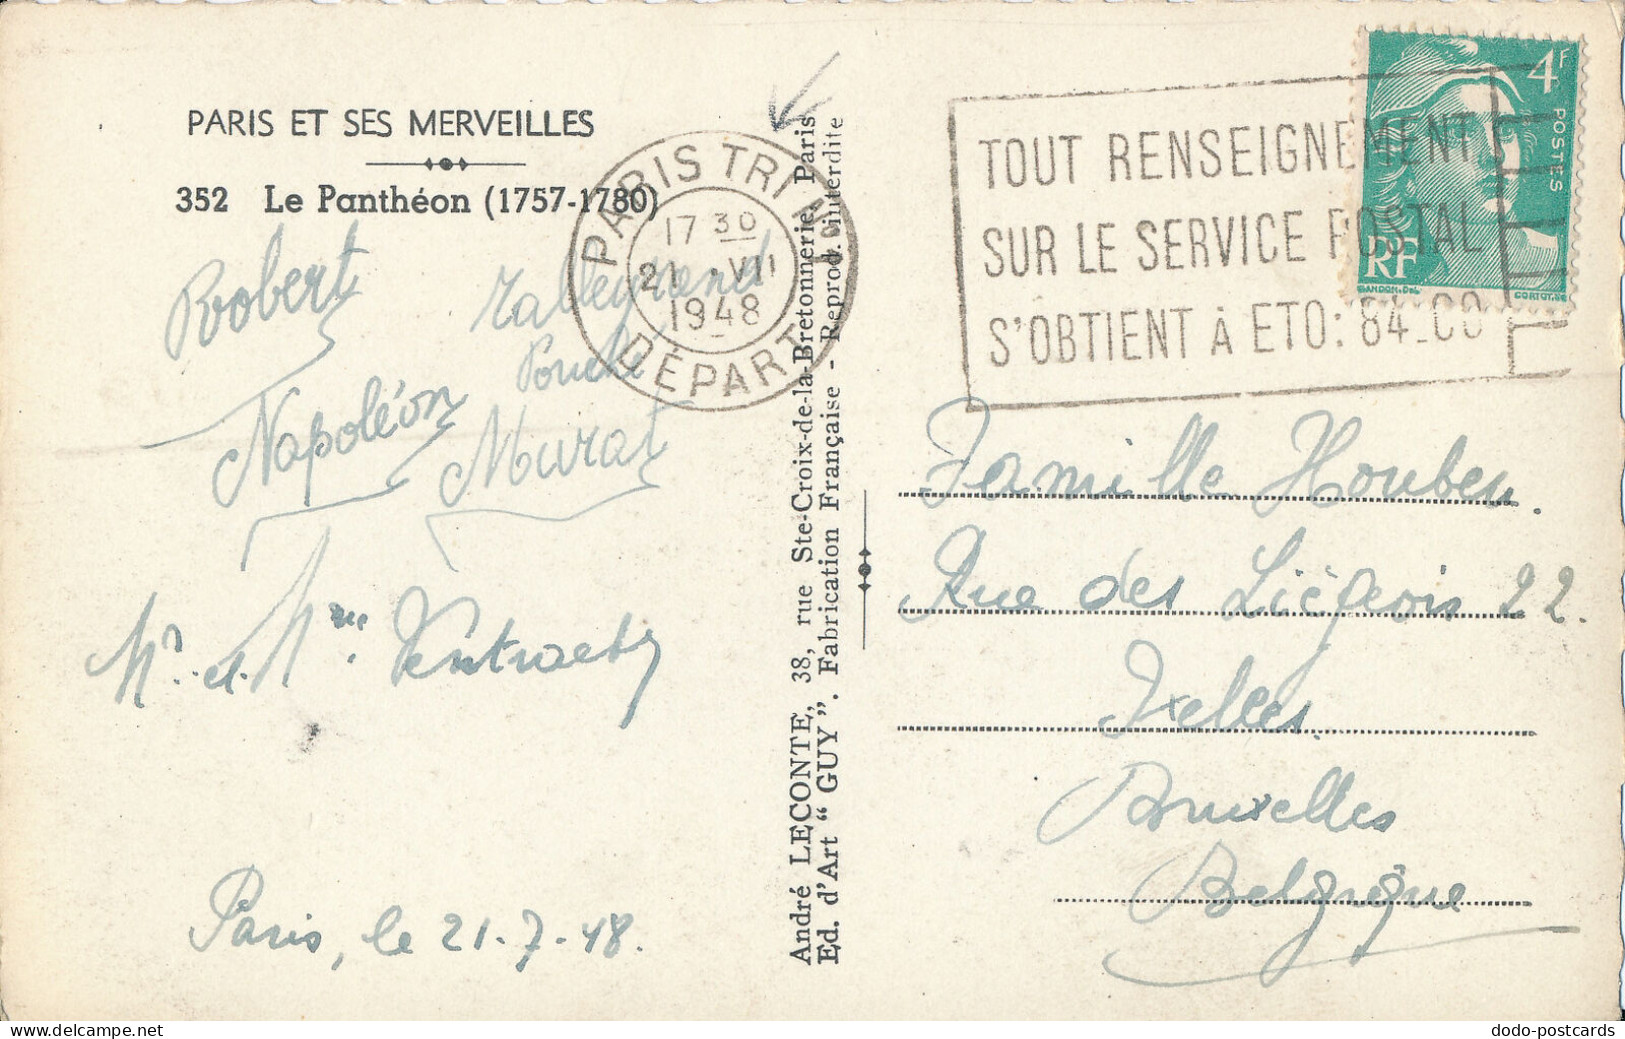 PARIS ET SES MERVEILLES
352 Le Panthéon (1757-1780)
Robert
Talleyrand
Fouché
Napoléon
Murat
Mr et Mme
Paris, le 21-7-48.
PARIS TRI No
17 30
21 · VII
1948
DÉPART
André LECONTE, 38, rue Ste-Croix-de-la-Bretonnerie, Paris
Ed. d'Art “GUY”. Fabrication Française - Reprod. interdite
TOUT RENSEIGNEMENT
SUR LE SERVICE POSTAL
S'OBTIENT À ETO: 84_00
4F
POSTES
RF
GANDON.Del
CORTOT.SC
Famille Houben.
Rue des Liégeois 22.
Ixelles.
Bruxelles
Belgique
dodo-postcards